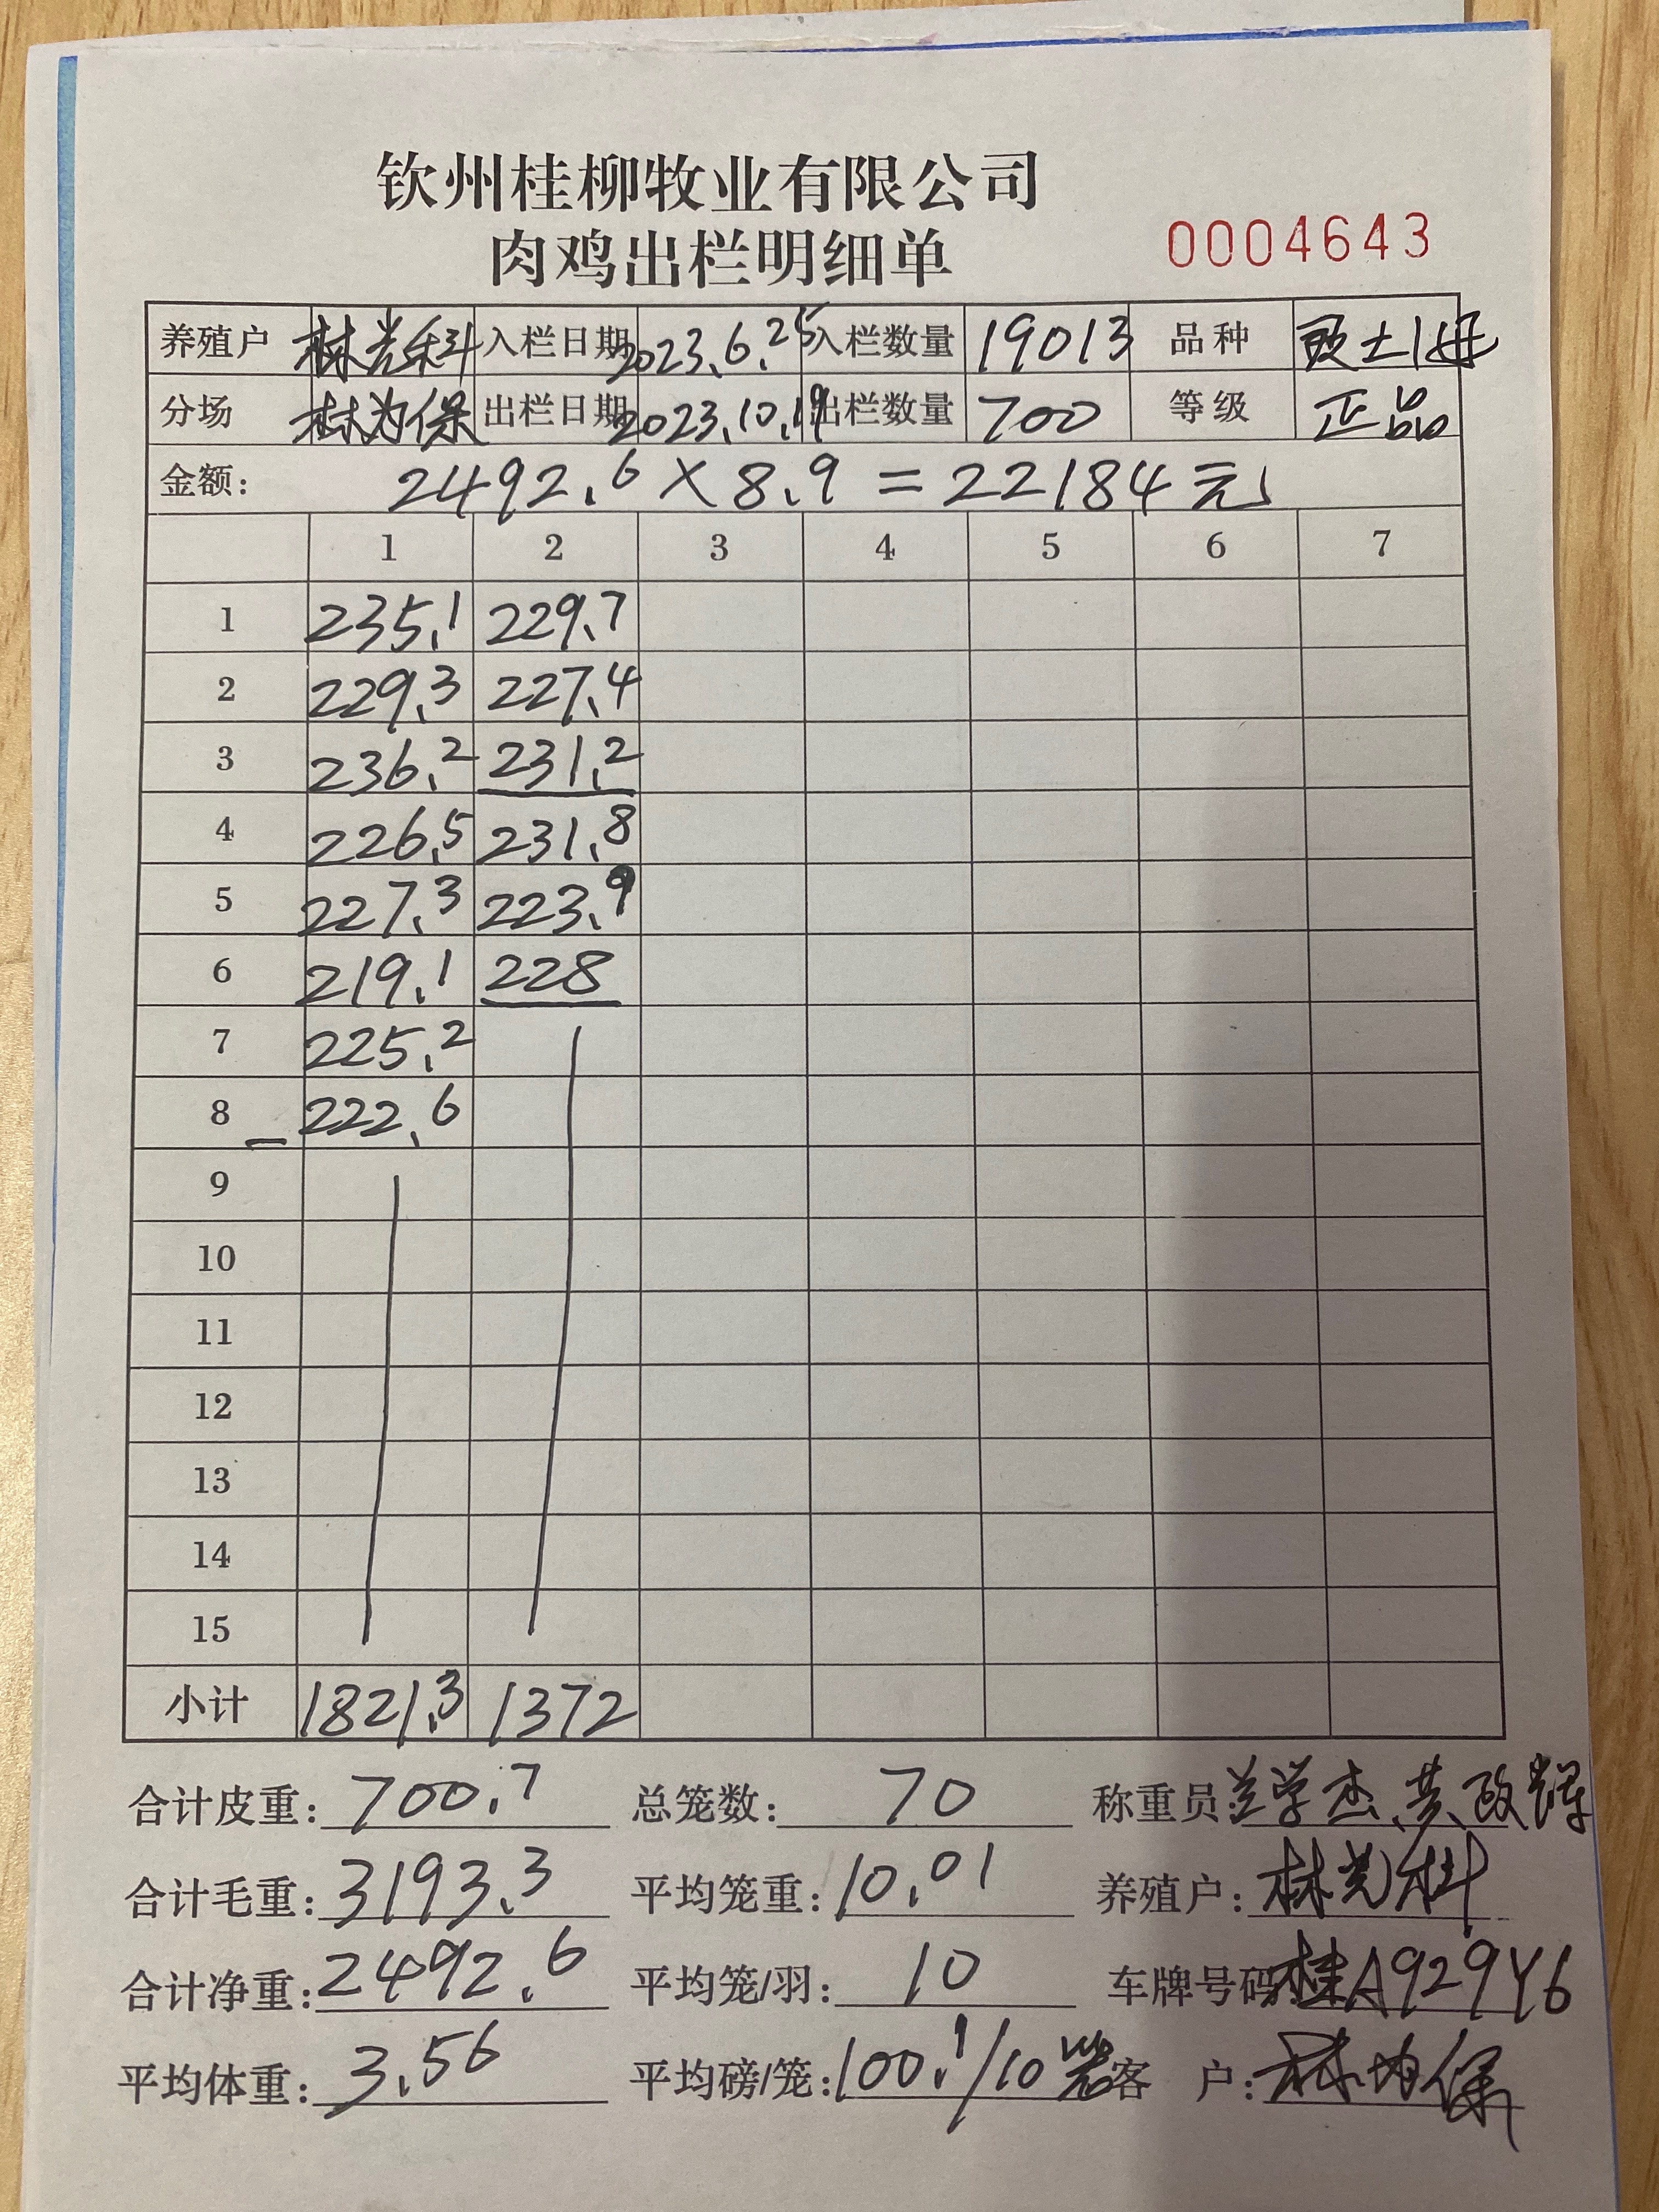 钦州桂柳牧业有限公司
肉鸡出栏明细单
0004643
养殖户 林光科 入栏日期 2023.6.25 入栏数量 19013 品种 土1母
分场 林为保 出栏日期 2023.10.19 出栏数量 700 等级 正品
金额: 2492.6×8.9=22184元
1 2 3 4 5 6 7
1 235.1 229.7
2 229.3 227.4
3 236.2 231.2
4 226.5 231.8
5 227.3 223.9
6 219.1 228
7 225.2
8 222.6
9
10
11
12
13
14
15
小计 1821.3 1372
合计皮重: 700.7 总笼数: 70 称重员 兰学杰、黄政辉
合计毛重: 3193.3 平均笼重: 10.01 养殖户: 林光科
合计净重: 2492.6 平均笼/羽: 10 车牌号码: 桂A929Y6
平均体重: 3.56 平均磅/笼: 100.1/10 客户: 林为保